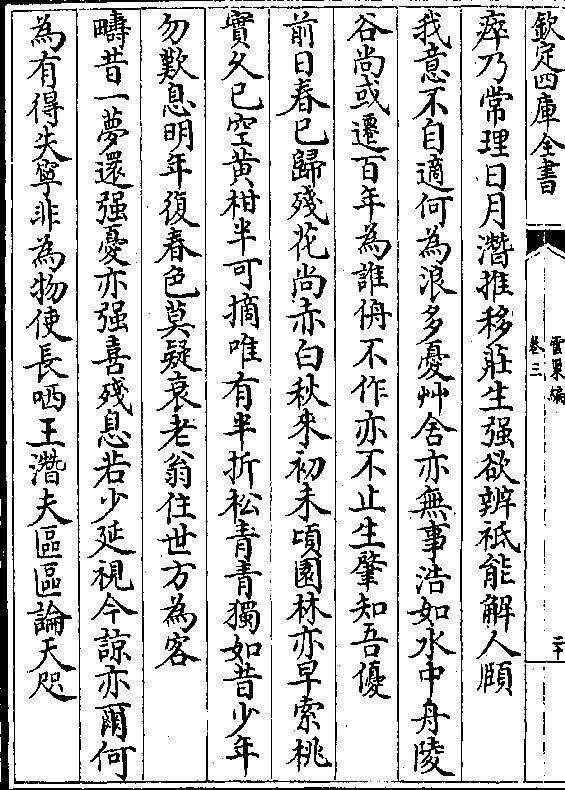 欽定四庫全書
雲巢編
卷三
二十
瘁乃常理日月潛推移莊生强欲辨祇能解人頤
我意不自適何為浪多憂艸舍亦無事浩如水中舟陵
谷尚或遷百年為誰侜不作亦不止生肇知吾優
前日春已歸殘花尚赤白秋來初未頃園林亦早索桃
實久已空黃柑半可摘唯有半折松青青獨如昔少年
勿歎息明年復春色莫疑衰老翁住世方為客
疇昔一夢還强憂亦强喜殘息若少延視今諒亦爾何
為有得失寧非為物使長哂王潛夫區區論天咫